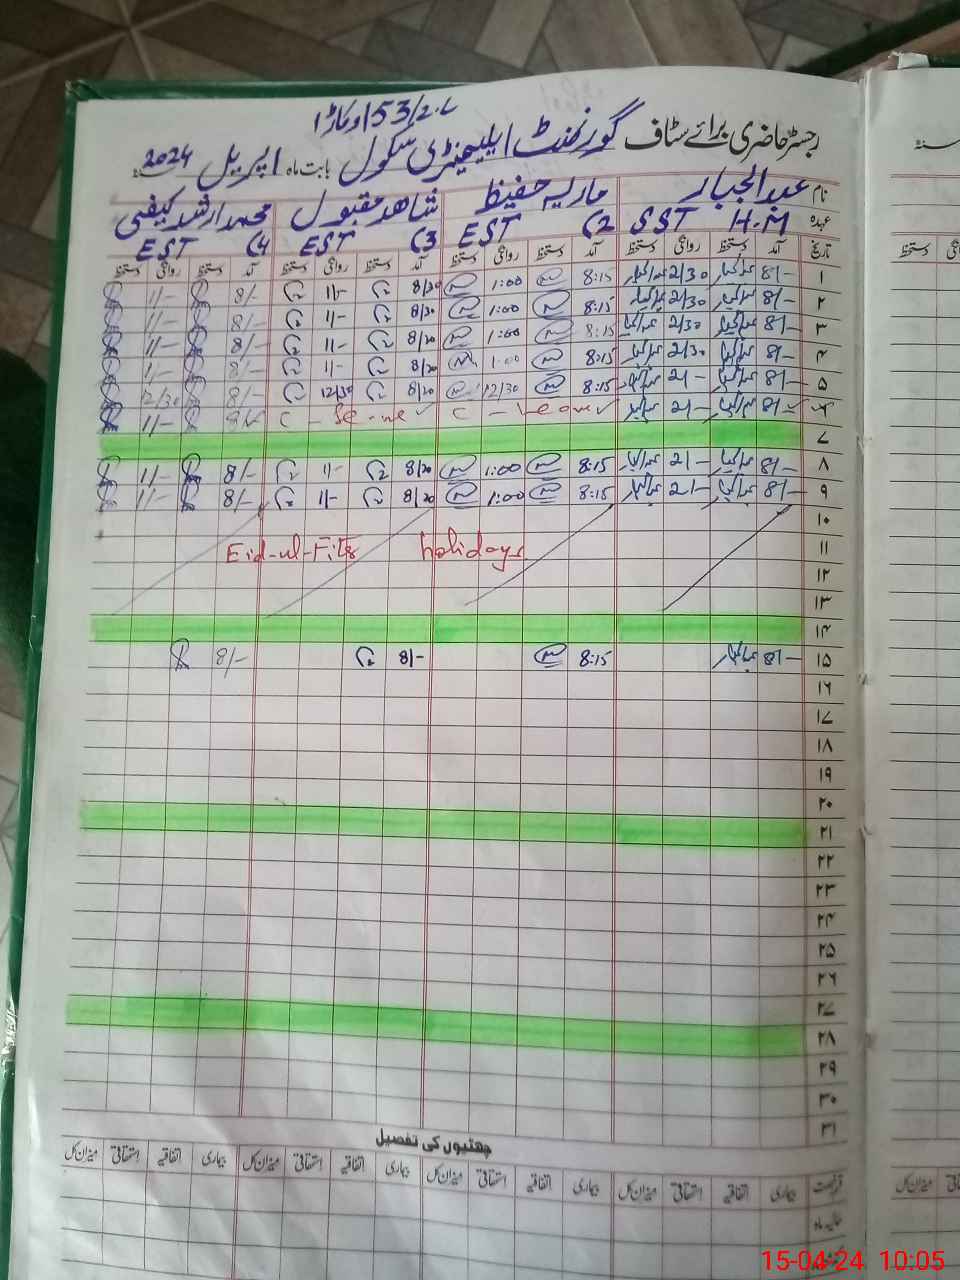 153/2.L اوکاڑا
رجسٹر حاضری برائے سٹاف گورنمنٹ ایلیمنٹری سکول بابت ماہ اپریل 2024
نام عبدالجبار ماریہ حفیظ شاهد مقبول محمد ارشد کیفی
عہدہ SST H.M EST (2 EST (3 EST (4
تاریخ آمد دستخط روانگی دستخط آمد دستخط روانگی دستخط آمد دستخط روانگی دستخط آمد دستخط روانگی دستخط
۱ 8/- 2/30 8:15 1:00 8/20 1/- 8/- 1/-
۲ 8/- 2/30 8:15 1:00 8/20 1/- 8/- 1/-
۳ 8/- 2/30 8:15 1:00 8/20 1/- 8/- 1/-
۴ 8/- 2/30 8:15 1:00 8/20 1/- 8/- 1/-
۵ 8/- 2/- 8:15 12/30 8/20 12/30 8/- 12/30
8/- 2/- C - Leave C - Leave 8/- 1/-
۷
۸ 8/- 2/- 8:15 1:00 8/20 1/- 8/- 1/-
۹ 8/- 2/- 8:15 1:00 8/20 1/- 8/- 1/-
۱۰
۱۱ Eid-ul-Fitr holidays
۱۲
۱۳
۱۴
۱۵ 8/- 8:15 8/- 8/-
۱۶
۱۷
۱۸
۱۹
۲۰
۲۱
۲۲
۲۳
۲۴
۲۵
۲۶
۲۷
۲۸
۲۹
۳۰
۳۱
چھٹیوں کی تفصیل
بیماری اتفاقیہ استحقاقی میزان کل بیماری اتفاقیہ استحقاقی میزان کل بیماری اتفاقیہ استحقاقی میزان کل بیماری اتفاقیہ استحقاقی میزان کل
حالیہ ماہ
15-04-24 10:05